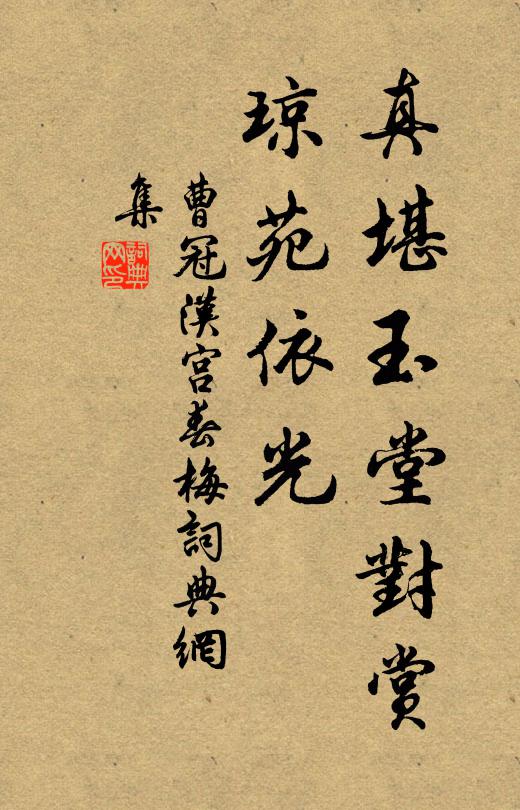 真堪玉堂對賞
琼苑依光
曹冠漢宮春梅詞典網
集
詞典
网印